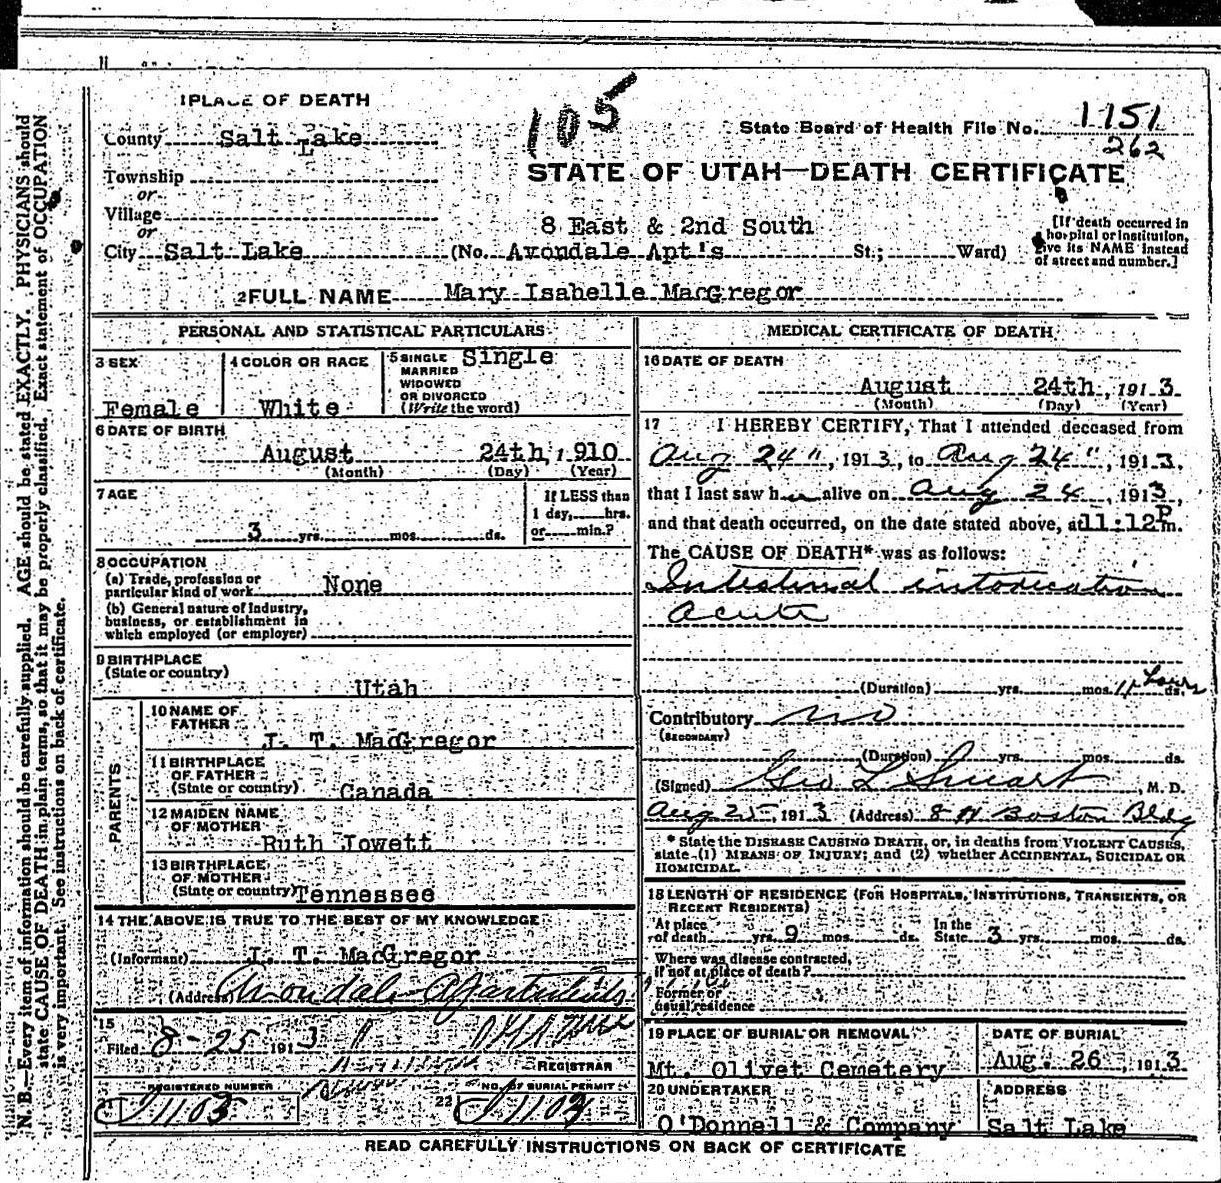 1 PLACE OF DEATH
105
State Board of Health File No. 1151
262
County Salt Lake
STATE OF UTAH—DEATH CERTIFICATE
Township
or
Village
or
8 East & 2nd South
City Salt Lake (No. Avondale Apt's St.; Ward)
[If death occurred in
hospital or institution,
give its NAME instead
of street and number.]
2 FULL NAME Mary Isabelle MacGregor
PERSONAL AND STATISTICAL PARTICULARS
3 SEX
Female
4 COLOR OR RACE
White
5 SINGLE Single
MARRIED
WIDOWED
OR DIVORCED
(Write the word)
6 DATE OF BIRTH
August 24th, 1910
(Month) (Day) (Year)
7 AGE
3 yrs. mos. ds.
If LESS than
1 day, hrs.
or min.?
8 OCCUPATION
(a) Trade, profession or
particular kind of work None
(b) General nature of Industry,
business, or establishment in
which employed (or employer)
9 BIRTHPLACE
(State or country)
Utah
PARENTS
10 NAME OF
FATHER
J. T. MacGregor
11 BIRTHPLACE
OF FATHER
(State or country) Canada
12 MAIDEN NAME
OF MOTHER
Ruth Jowett
13 BIRTHPLACE
OF MOTHER
(State or country) Tennessee
14 THE ABOVE IS TRUE TO THE BEST OF MY KNOWLEDGE
(Informant) J. T. MacGregor
(Address) Avondale Apartments
15
Filed 8-25 1913
REGISTRAR
REGISTERED NUMBER
1103
22
NO. OF BURIAL PERMIT
1103
MEDICAL CERTIFICATE OF DEATH
16 DATE OF DEATH
August 24th, 1913
(Month) (Day) (Year)
17 I HEREBY CERTIFY, That I attended deceased from
Aug 24", 1913, to Aug 24", 1913,
that I last saw her alive on Aug 24, 1913,
and that death occurred, on the date stated above, at 11:12 P m.
The CAUSE OF DEATH* was as follows:
Intestinal intoxication
acute
(Duration) yrs. mos. 11 hours ds.
Contributory no
(SECONDARY)
(Duration) yrs. mos. ds.
(Signed) Geo L Smart, M. D.
Aug 25, 1913 (Address) Boston Bldg
* State the DISEASE CAUSING DEATH, or, in deaths from VIOLENT CAUSES,
state (1) MEANS OF INJURY; and (2) whether ACCIDENTAL, SUICIDAL OR
HOMICIDAL.
18 LENGTH OF RESIDENCE (FOR HOSPITALS, INSTITUTIONS, TRANSIENTS, OR
RECENT RESIDENTS)
At place
of death yrs. 9 mos. ds.
In the
State 3 yrs. mos. ds.
Where was disease contracted,
if not at place of death?
Former or
usual residence
19 PLACE OF BURIAL OR REMOVAL
Mt. Olivet Cemetery
DATE OF BURIAL
Aug. 26, 1913
20 UNDERTAKER
O'Donnell & Company
ADDRESS
Salt Lake
READ CAREFULLY INSTRUCTIONS ON BACK OF CERTIFICATE
N. B.—Every item of information should be carefully supplied. AGE should be stated EXACTLY. PHYSICIANS should
state CAUSE OF DEATH in plain terms, so that it may be properly classified. Exact statement of OCCUPATION
is very important. See instructions on back of certificate.